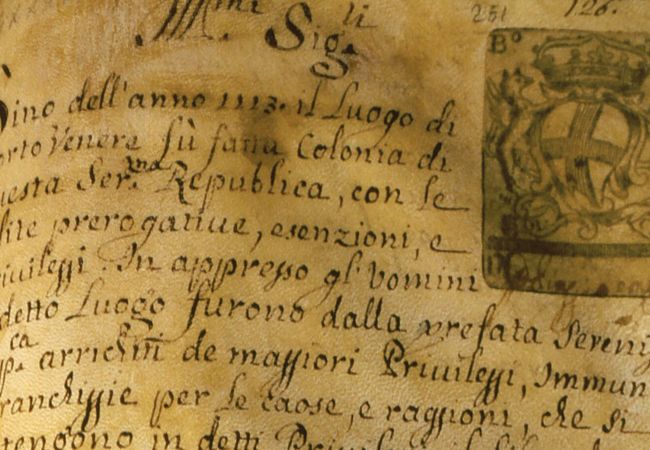 Ill.mi Sig.li
251 126.
B°
Sino dell'anno 1113. il Luogo di
orto Venere fù fatta Colonia di
uesta Ser.ma Republica, con le
lite prerogative, esenzioni, e
rivileggi. In appresso gl'Uomini
detto Luogo furono dalla prefata Sereniss
p.ca arrichiti de maggiori Privileggi, Immun
ranchiggie per le caose, e raggioni, che si
tengono in detti